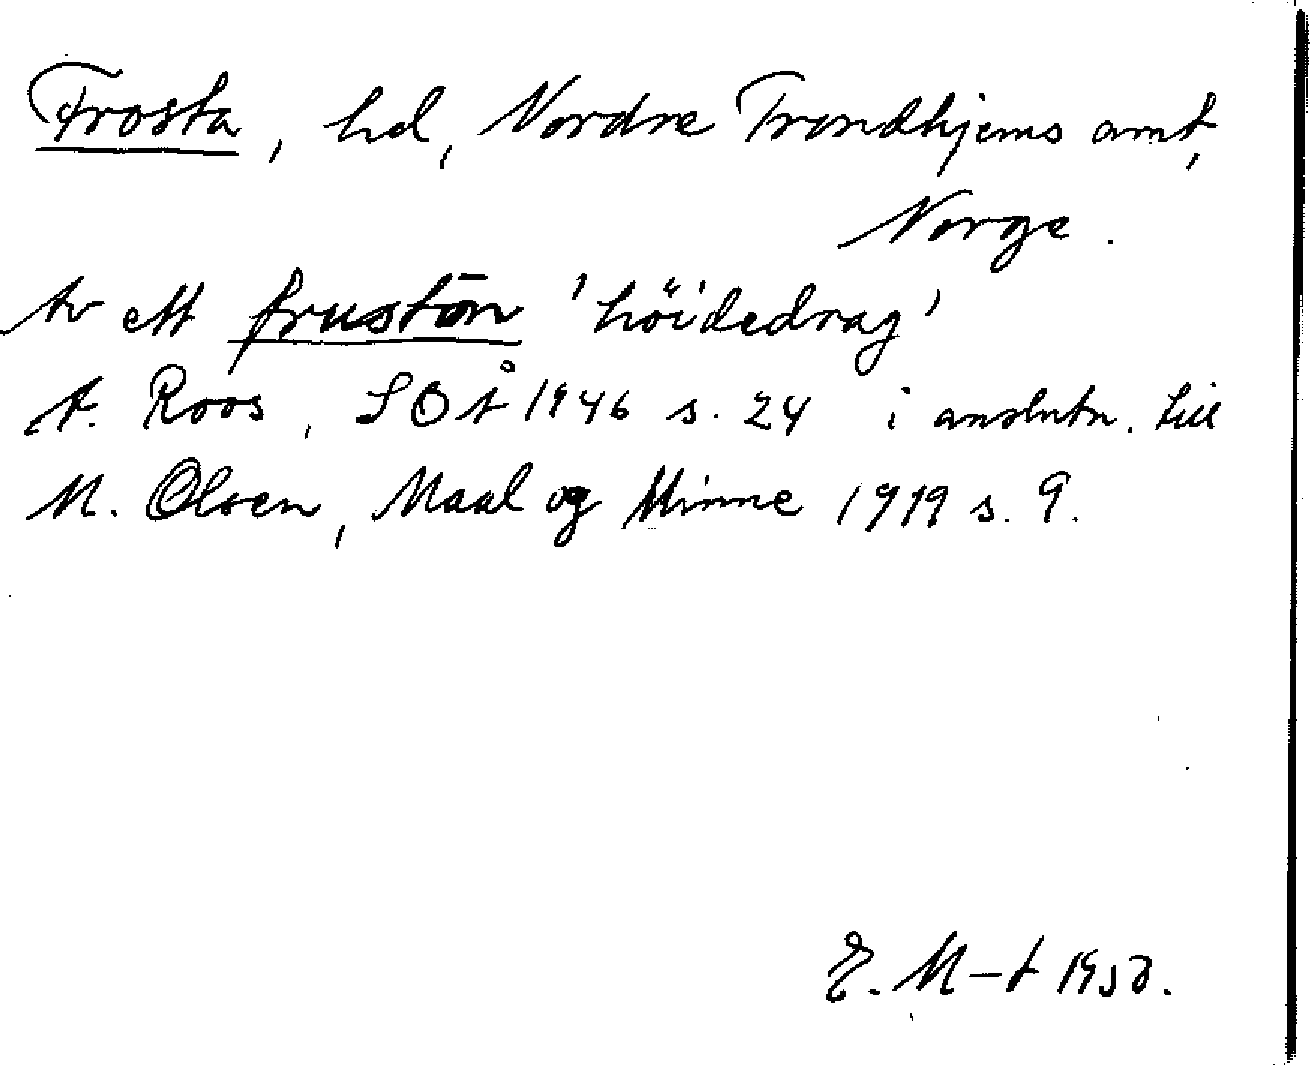 Frosta, hd, Nordre Trondhjems amt,
Norge.
Av ett frustōn 'höidedrag'
A. Roos, SOÅ 1946 s. 24 i anslutn. till
M. Olsen, Maal og Minne 1919 s. 9.
E. M–t